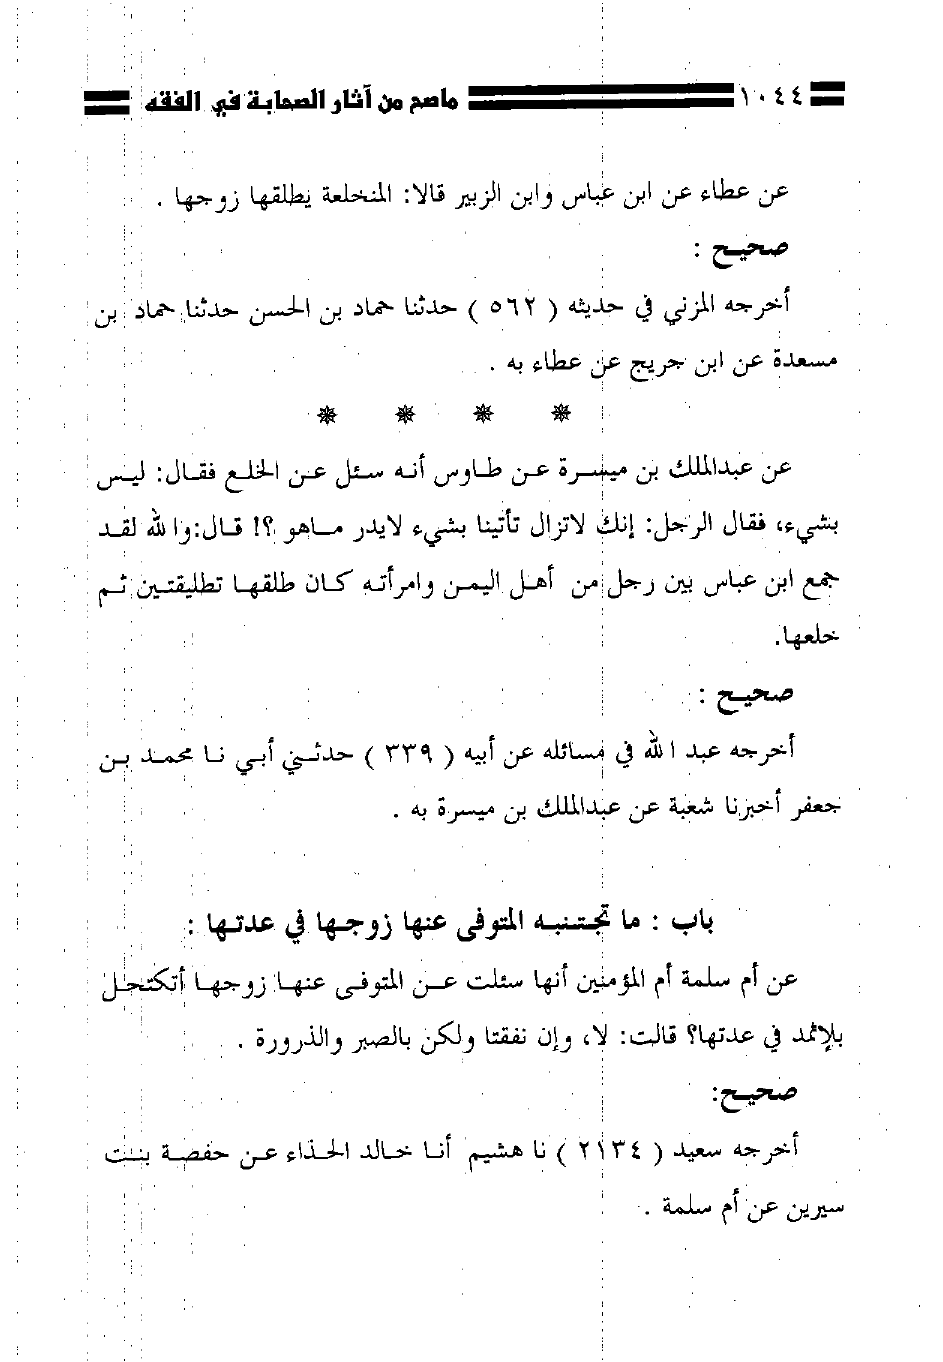 ١٠٤٤ ماصح من آثار الصحابة في الفقه
عن عطاء عن ابن عباس وابن الزبير قالا: المنخلعة يطلقها زوجها .
صحيح :
أخرجه المزني في حديثه ( ٥٦٢ ) حدثنا حماد بن الحسن حدثنا حماد بن
مسعدة عن ابن جريج عن عطاء به .
عن عبدالملك بن ميسرة عن طاوس أنه سئل عن الخلع فقال: ليس
بشيء، فقال الرجل: إنك لاتزال تأتينا بشيء لايدر ماهو ؟! قال:والله لقد
جمع ابن عباس بين رجل من أهل اليمن وامرأته كان طلقها تطليقتين ثم
خلعها.
صحيح :
أخرجه عبد الله في مسائله عن أبيه ( ٣٣٩ ) حدثني أبي نا محمد بن
جعفر أخبرنا شعبة عن عبدالملك بن ميسرة به .
باب : ما تجتنبه المتوفى عنها زوجها في عدتها :
عن أم سلمة أم المؤمنين أنها سئلت عن المتوفى عنها زوجها أتكتحل
بالإثمد في عدتها؟ قالت: لا، وإن نفقتا ولكن بالصبر والذرورة .
صحيح:
أخرجه سعيد ( ٢١٣٤ ) نا هشيم أنا خالد الحذاء عن حفصة بنت
سيرين عن أم سلمة .